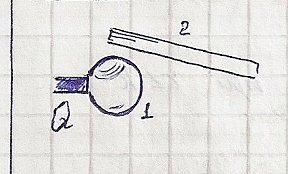 2
Q 1